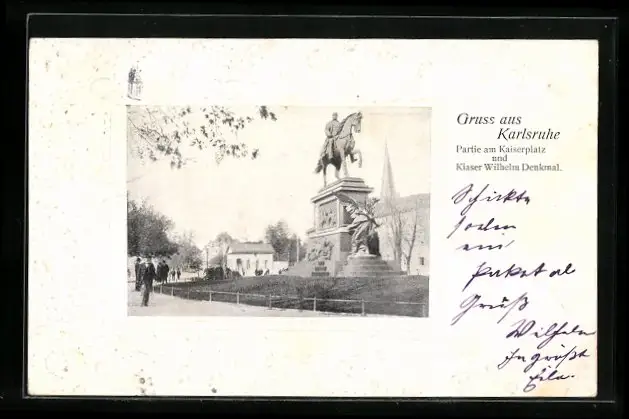 Gruss aus
Karlsruhe
Partie am Kaiserplatz
und
Kiaser Wilhelm Denkmal.
Schickte
soeben
ein
Paket ab
Gruß
Wilhelm
In größt
Eile.